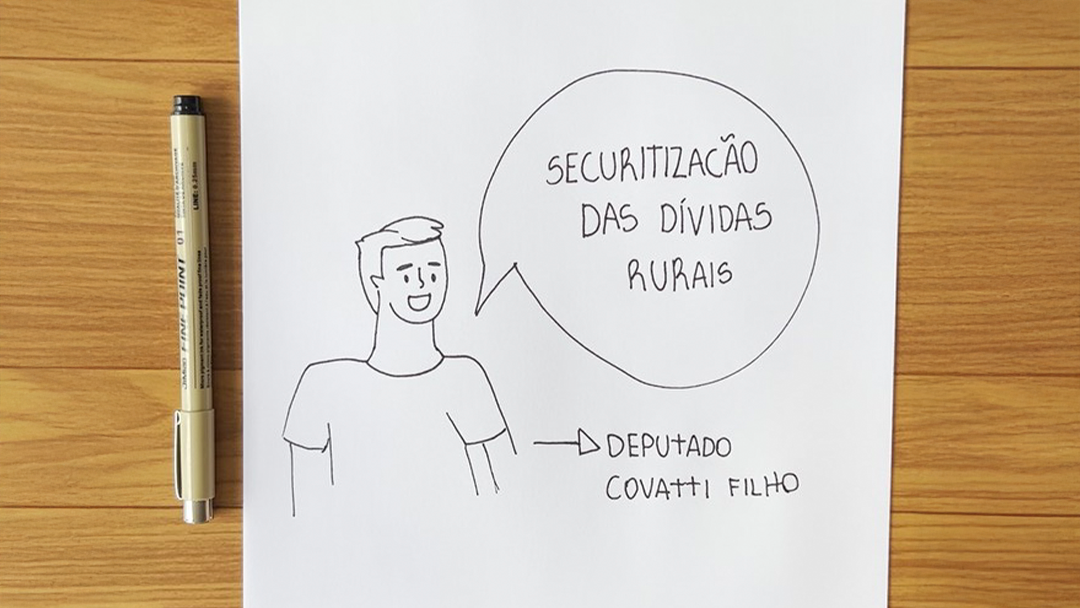 SECURITIZAÇÃO
DAS DÍVIDAS
RURAIS
DEPUTADO
COVATTI FILHO
FINE POINT 01
LINE: 0.25mm